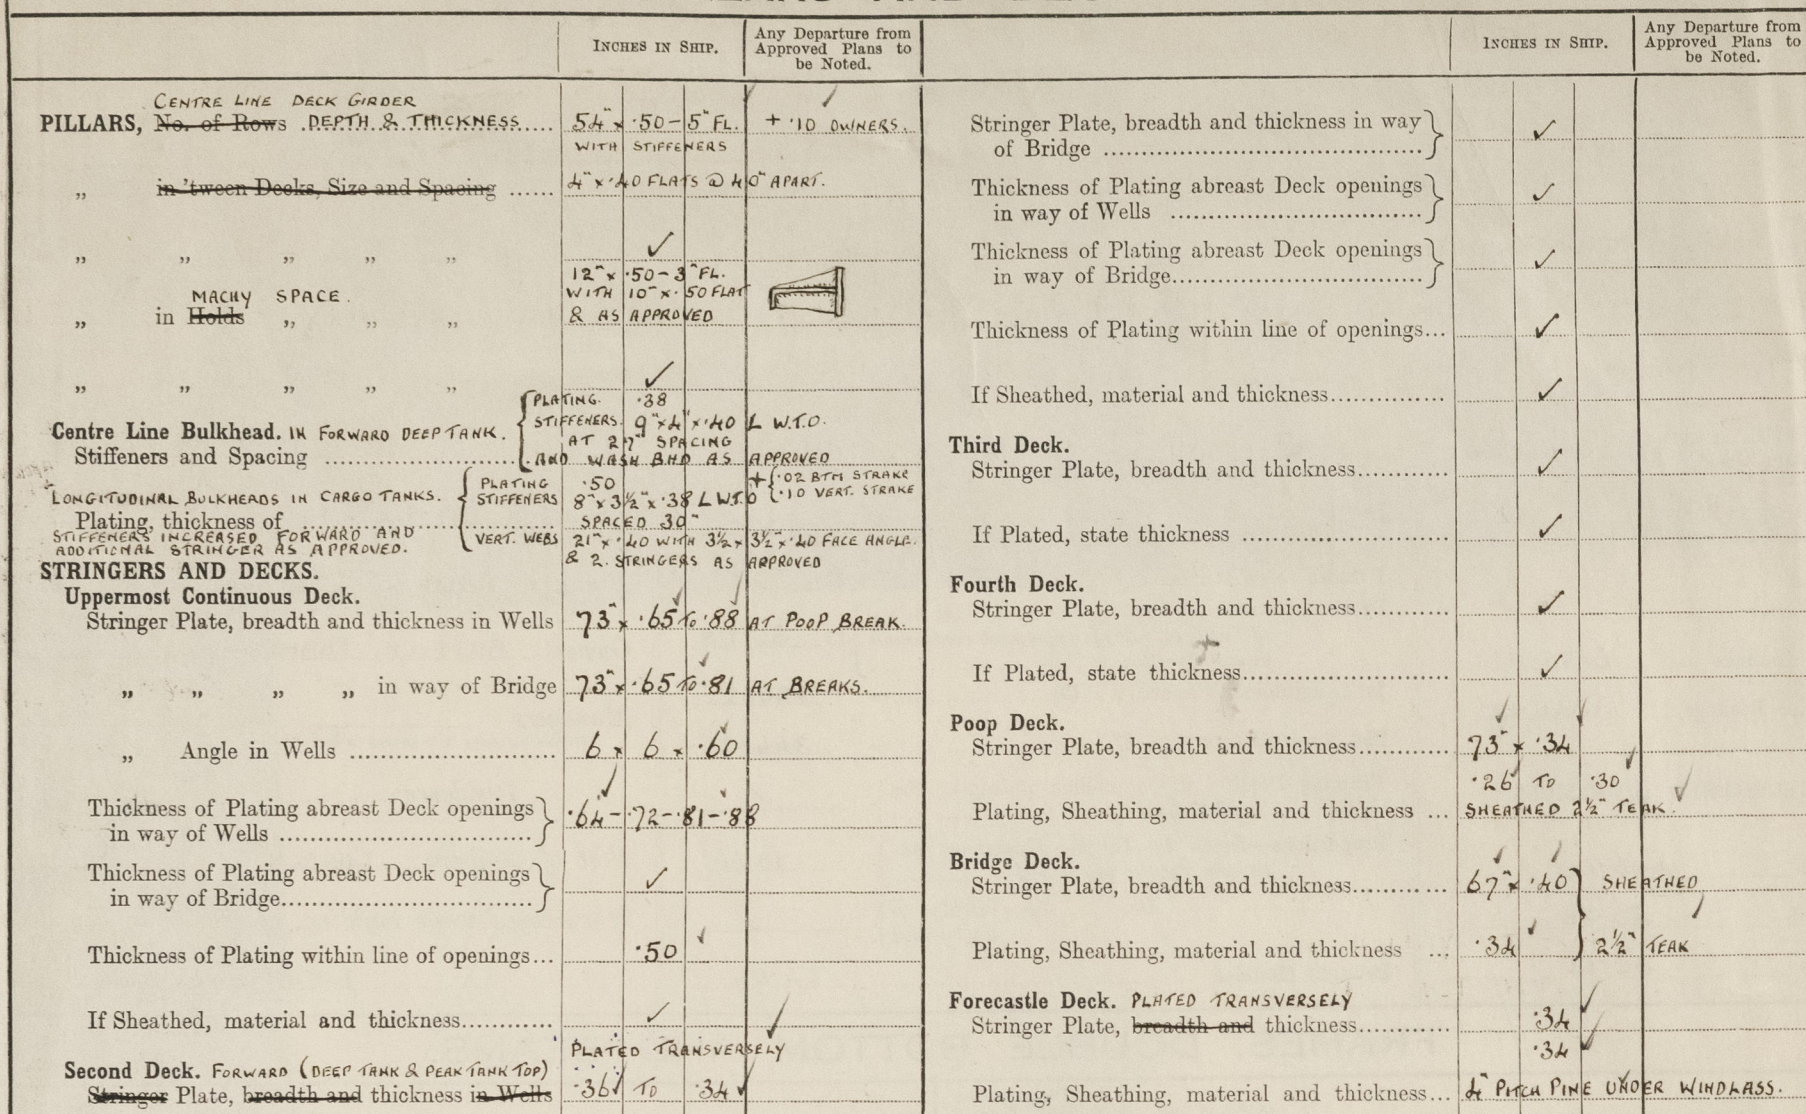 INCHES IN SHIP.
Any Departure from
Approved Plans to
be Noted.
CENTRE LINE DECK GIRDER
PILLARS, No. of Rows DEPTH & THICKNESS.... 54" x .50 - 5" FL. + .10 OWNERS.
WITH STIFFENERS
„ in 'tween Decks, Size and Spacing ...... 4" x .40 FLATS @ 40" APART.
„ „ „ „ „ ✓
12" x .50 - 3" FL.
MACHY SPACE. WITH 10" x .50 FLAT
„ in Holds „ „ „ & AS APPROVED
„ „ „ „ „ ✓
PLATING. .38
Centre Line Bulkhead. IN FORWARD DEEP TANK. STIFFENERS. 9" x 4" x .40 L W.T.O.
AT 27" SPACING
Stiffeners and Spacing ........................ AND WASH BHD AS APPROVED
LONGITUDINAL BULKHEADS IN CARGO TANKS. PLATING .50 + { .02 BTM STRAKE
STIFFENERS 8" x 3½" x .38 L W.T.O .10 VERT. STRAKE
Plating, thickness of ........................ SPACED 30"
STIFFENERS INCREASED FORWARD AND VERT. WEBS 21" x .40 WITH 3½ x 3½" x .40 FACE ANGLE.
ADDITIONAL STRINGER AS APPROVED. & 2. STRINGERS AS APPROVED
STRINGERS AND DECKS.
Uppermost Continuous Deck.
Stringer Plate, breadth and thickness in Wells 73" x .65 TO .88 AT POOP BREAK.
„ „ „ „ in way of Bridge 73" x .65 TO .81 AT BREAKS.
„ Angle in Wells ........................ 6 x 6 x .60
Thickness of Plating abreast Deck openings
in way of Wells ........................ .64 - .72 - .81 - .88
Thickness of Plating abreast Deck openings
in way of Bridge........................ ✓
Thickness of Plating within line of openings... .50
If Sheathed, material and thickness............ ✓
PLATED TRANSVERSELY
Second Deck. FORWARD (DEEP TANK & PEAK TANK TOP)
Stringer Plate, breadth and thickness in Wells .36 TO .34
INCHES IN SHIP.
Any Departure from
Approved Plans to
be Noted.
Stringer Plate, breadth and thickness in way
of Bridge ........................ ✓
Thickness of Plating abreast Deck openings
in way of Wells ........................ ✓
Thickness of Plating abreast Deck openings
in way of Bridge........................ ✓
Thickness of Plating within line of openings... ✓
If Sheathed, material and thickness............ ✓
Third Deck.
Stringer Plate, breadth and thickness............ ✓
If Plated, state thickness ........................ ✓
Fourth Deck.
Stringer Plate, breadth and thickness............ ✓
If Plated, state thickness........................ ✓
Poop Deck.
Stringer Plate, breadth and thickness............ 73" x .34
.26 TO .30
Plating, Sheathing, material and thickness ... SHEATHED 2½" TEAK.
Bridge Deck.
Stringer Plate, breadth and thickness............ 67" x .40 SHEATHED
Plating, Sheathing, material and thickness ... .34 2½" TEAK
Forecastle Deck. PLATED TRANSVERSELY
Stringer Plate, breadth and thickness............ .34
.34
Plating, Sheathing, material and thickness... 4" PITCH PINE UNDER WINDLASS.